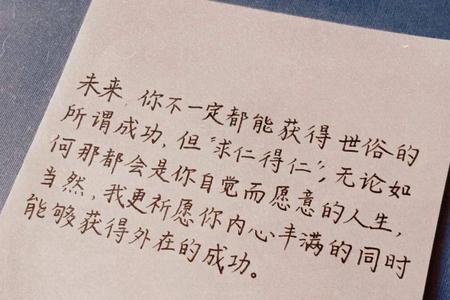 未来,你不一定都能获得世俗的
所谓成功,但“求仁得仁”,无论如
何那都会是你自觉而愿意的人生,
当然,我更祈愿你内心丰满的同时
能够获得外在的成功。